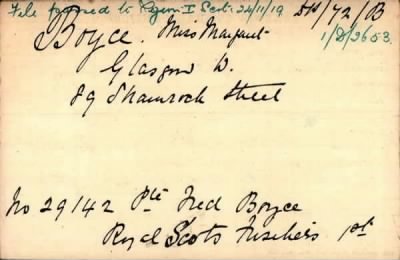 File passed to Regm. I Sect. 24/11/19 DH/72/B
1/D/2653.
Boyce. Miss Margaret
Glasgow W.
89 Shamrock Street
No 29142 Pte Fred Boyce
Royal Scots Fusehiers 1st